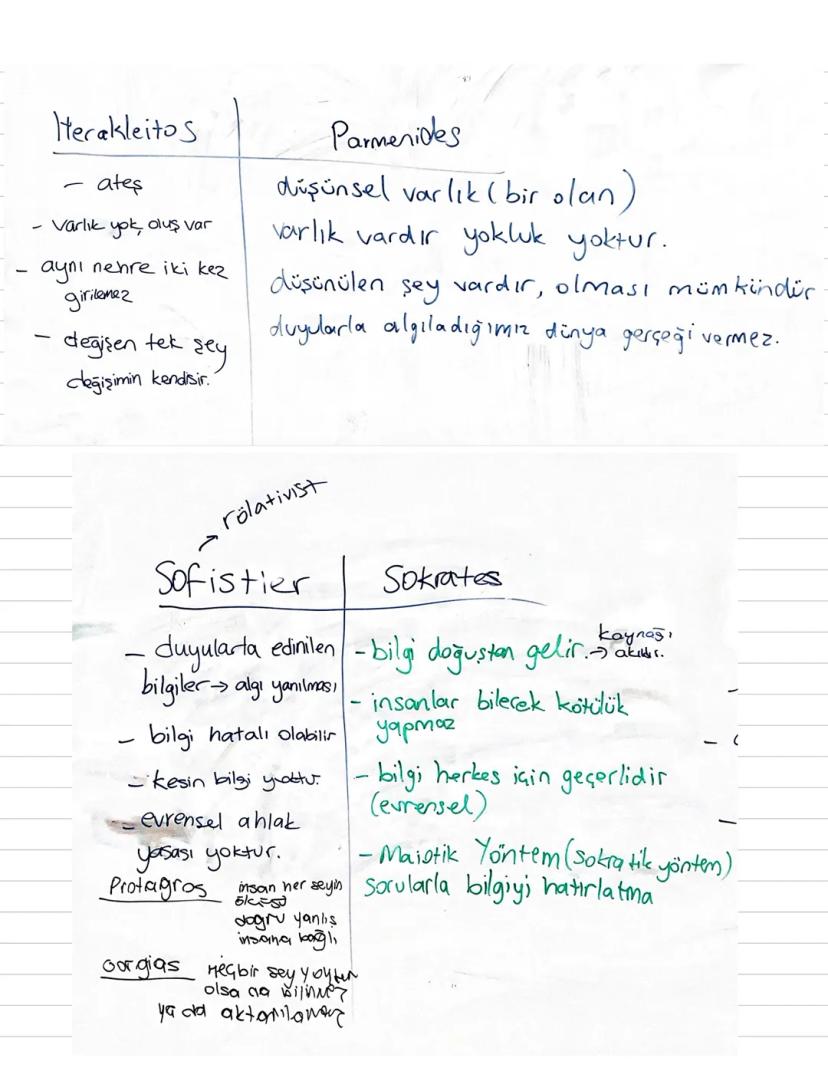 Herakleitos
- ateş
- varlık yok, oluş var
- aynı nehre iki kez
girilemez
- değişen tek şey
değişimin kendisir.
Parmenides
düşünsel varlık (bir olan)
varlık vardır yokluk yoktur.
düşünülen şey vardır, olması mümkündür
duyularla algıladığımız dünya gerçeği vermez.
→ rölativist
Sofistler
- duyularla edinilen
bilgiler → algı yanılması
- bilgi hatalı olabilir
- kesin bilgi yoktur.
- evrensel ahlak
yasası yoktur.
Protagros insan her şeyin
ölçüsü
doğru yanlış
insana bağlı
Gorgias Hiçbir şey yoktur
olsa da bilinmez
ya da aktarılamaz
Sokrates
- bilgi doğuştan gelir. → kaynağı
akıldır.
- insanlar bilecek kötülük
yapmaz
- bilgi herkes için geçerlidir
(evrensel)
- Maiotik Yöntem (sokratik yöntem)
Sorularla bilgiyi hatırlatma